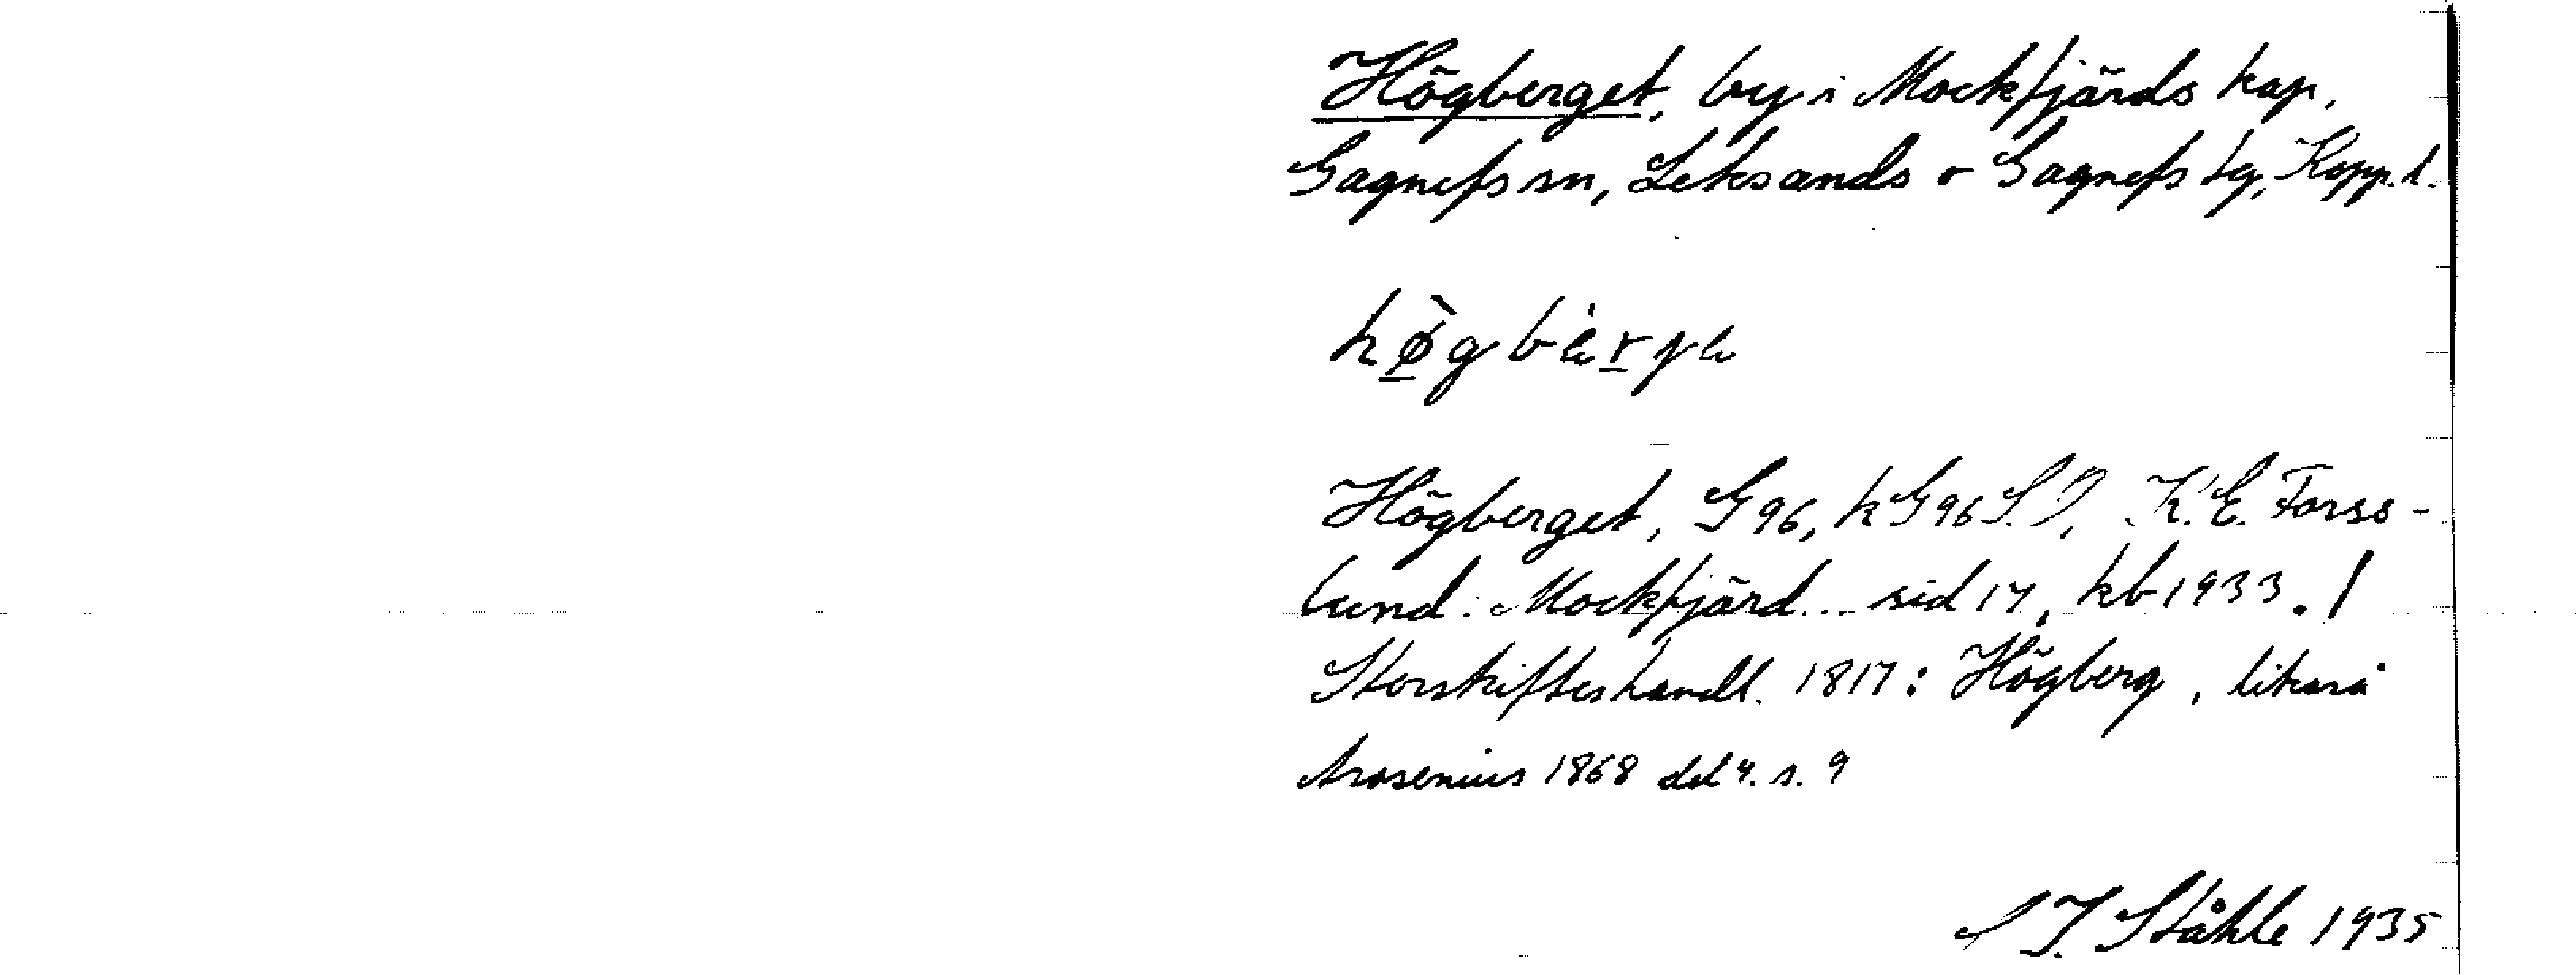 Högberget, by i Mockfjärds kap,
Gagnefs sn, Leksands o Gagnefs tg, Kopp. l.
Högberget, G96, kG96 S.J, K.E. Forss-
lund: Mockfjärd... sid 17, kb 1933. /
Storskifteshandl. 1817: Högberg, likaså
Arosenius 1868 del 4. s. 9
Ståhle 1935